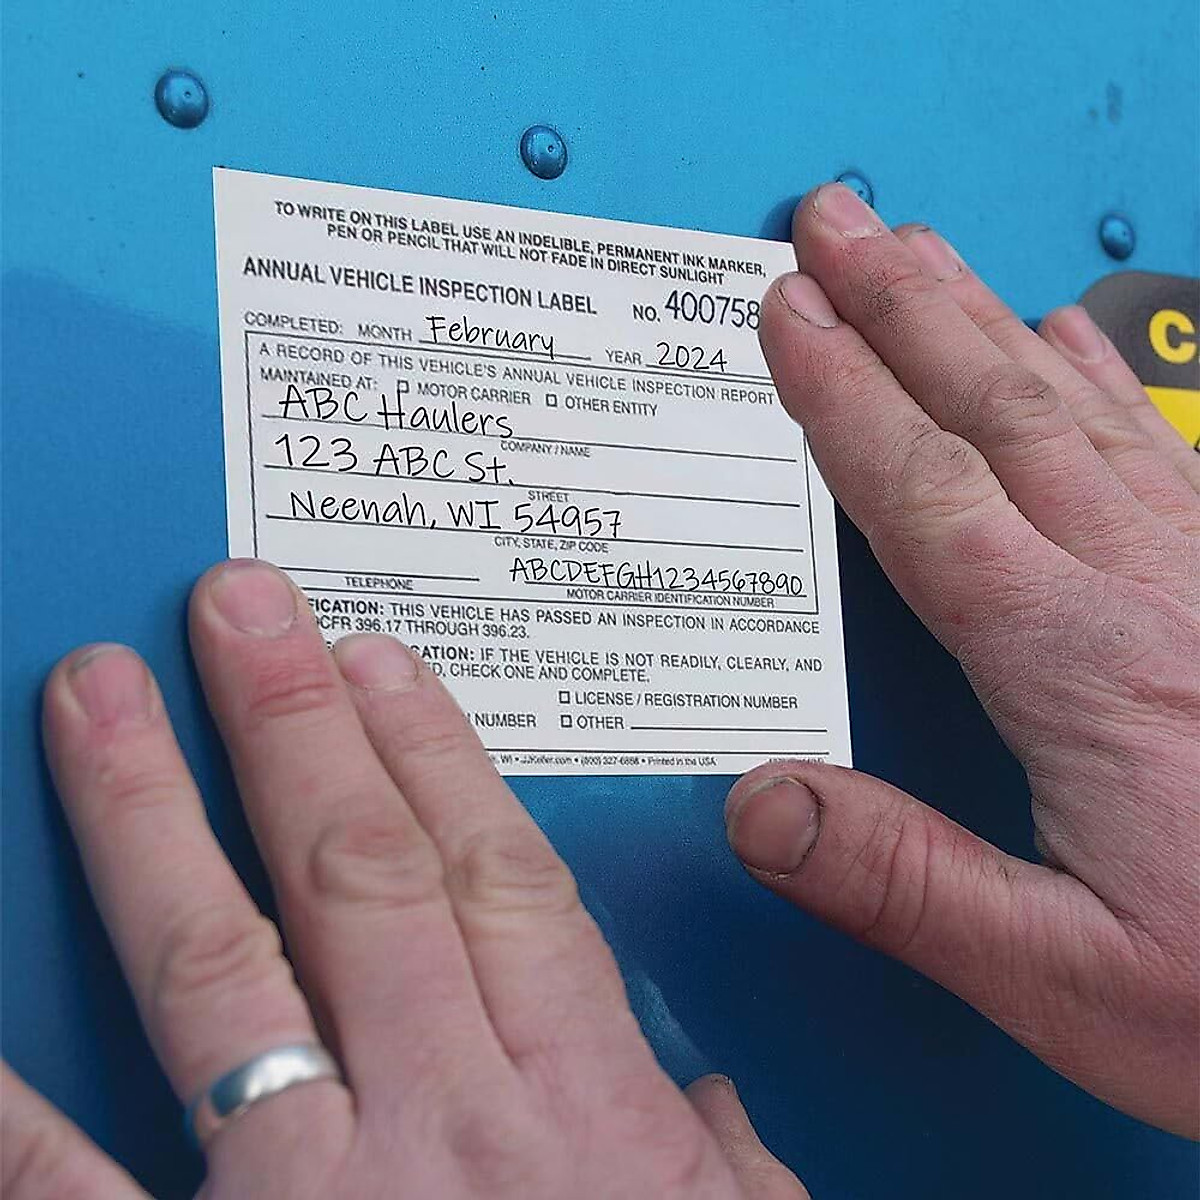 TO WRITE ON THIS LABEL USE AN INDELIBLE, PERMANENT INK MARKER,
PEN OR PENCIL THAT WILL NOT FADE IN DIRECT SUNLIGHT
ANNUAL VEHICLE INSPECTION LABEL NO. 400758
COMPLETED: MONTH February YEAR 2024
A RECORD OF THIS VEHICLE'S ANNUAL VEHICLE INSPECTION REPORT
MAINTAINED AT: ☐ MOTOR CARRIER ☐ OTHER ENTITY
ABC Haulers
COMPANY / NAME
123 ABC St.
STREET
Neenah, WI 54957
CITY, STATE, ZIP CODE
ABCDEFGH1234567890
TELEPHONE MOTOR CARRIER IDENTIFICATION NUMBER
FICATION: THIS VEHICLE HAS PASSED AN INSPECTION IN ACCORDANCE
CFR 396.17 THROUGH 396.23.
CATION: IF THE VEHICLE IS NOT READILY, CLEARLY, AND
D, CHECK ONE AND COMPLETE.
☐ LICENSE / REGISTRATION NUMBER
NUMBER ☐ OTHER
WI • JJKeller.com • (800) 327-6868 • Printed in the USA
C